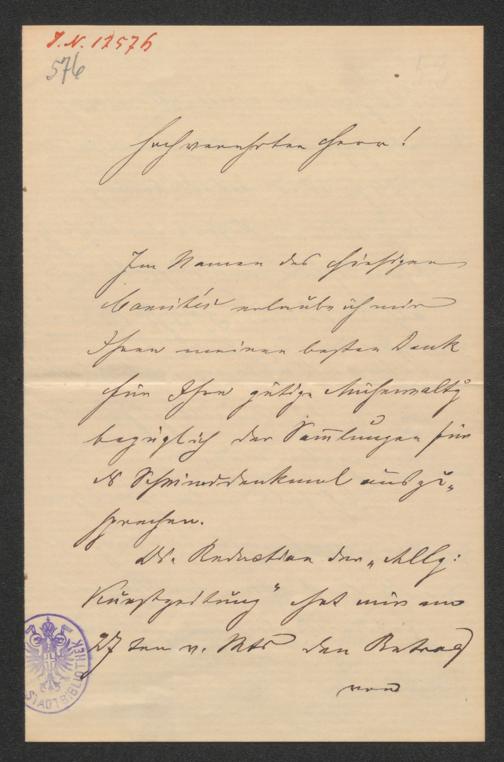 J.N. 12576
576
Hochverehrter Herr!
Im Namen des hiesigen
Comités erlaube ich mir
Ihnen meinen besten Dank
für Ihre gütige Mühewaltg
bezüglich der Sammlungen für
das denkmal auszu„
sprechen.
Die Redaction der „Allg:
Kunstzeitung" hat mir am
27ten v. Mts den Betrag
von
STADTBIBLIOTHEK